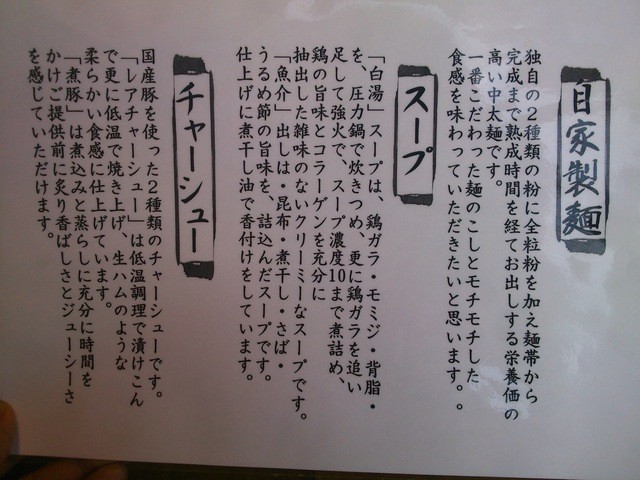 自家製麺
独自の2種類の粉に全粒粉を加え麺帯から
完成まで熟成時間を経てお出しする栄養価の
高い中太麺です。
一番こだわった麺のこしとモチモチした
食感を味わっていただきたいと思います。。
スープ
「白湯」スープは、鶏ガラ・モミジ・背脂・
を、圧力鍋で炊きつめ、更に鶏ガラを追い
足して強火で、スープ濃度10まで煮詰め、
鶏の旨味とコラーゲンを充分に
抽出した雑味のないクリーミーなスープです。
「魚介」出しは・昆布・煮干し・さば・
うるめ節の旨味を、詰込んだスープです。
仕上げに煮干し油で香付けをしています。
チャーシュー
国産豚を使った2種類のチャーシューです。
「レアチャーシュー」は低温調理で漬けこん
で更に低温で焼き上げ、生ハムのような
柔らかい食感に仕上げています。
「煮豚」は煮込みと蒸らしに充分に時間を
かけご提供前に炙り香ばしさとジューシーさ
を感じていただけます。